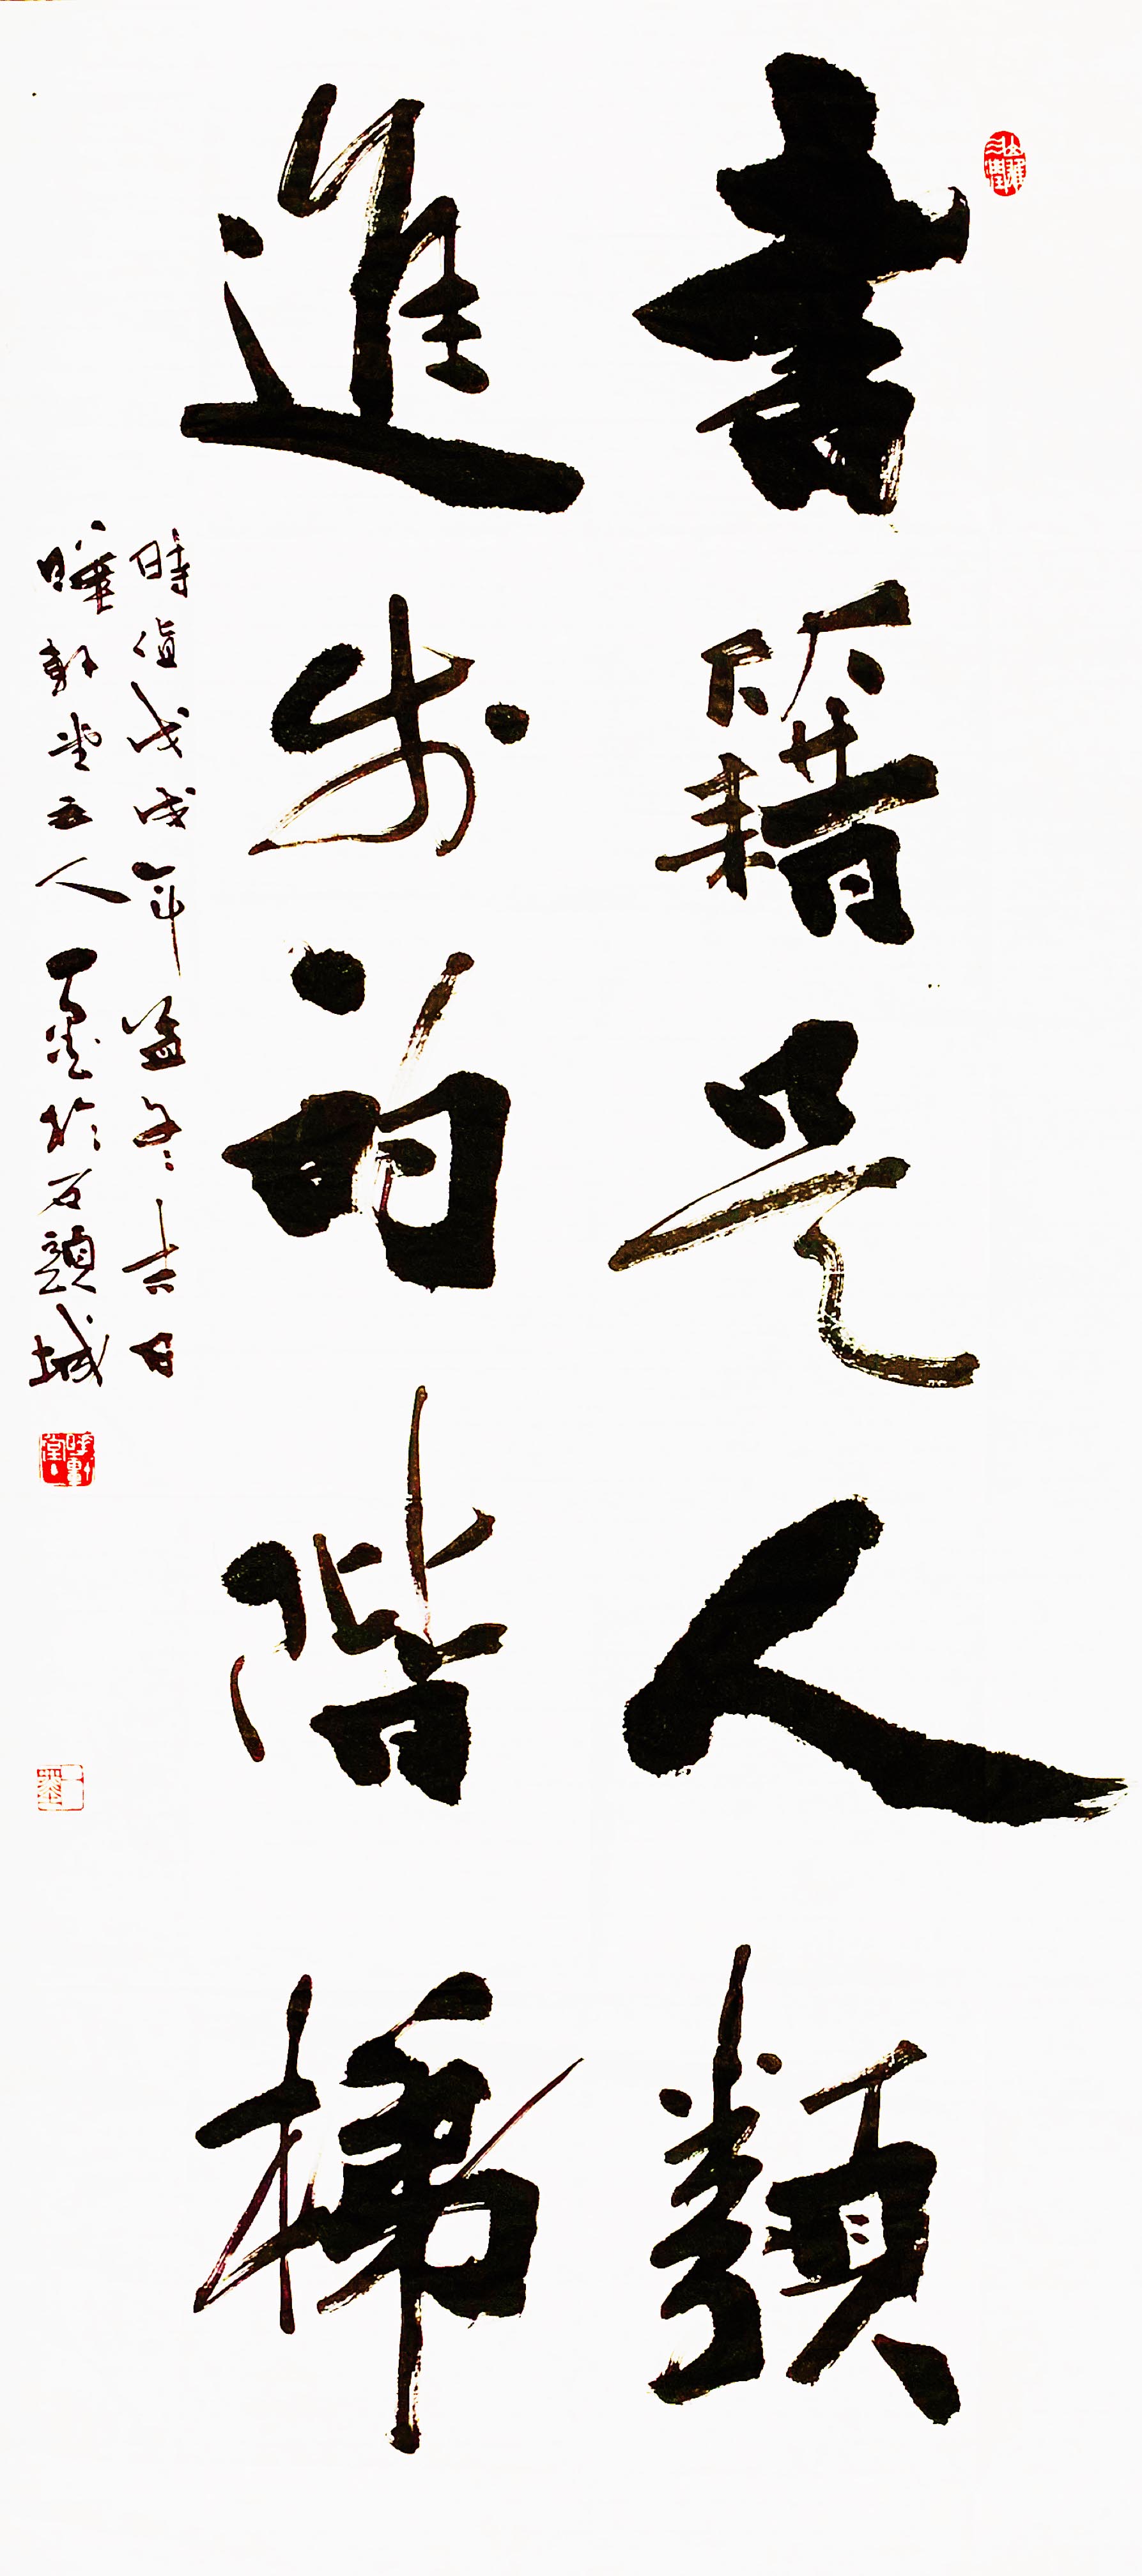 書籍是人類
進步的階梯
時值戊戌年孟冬吉日
曄軒堂主人一墨於石頭城